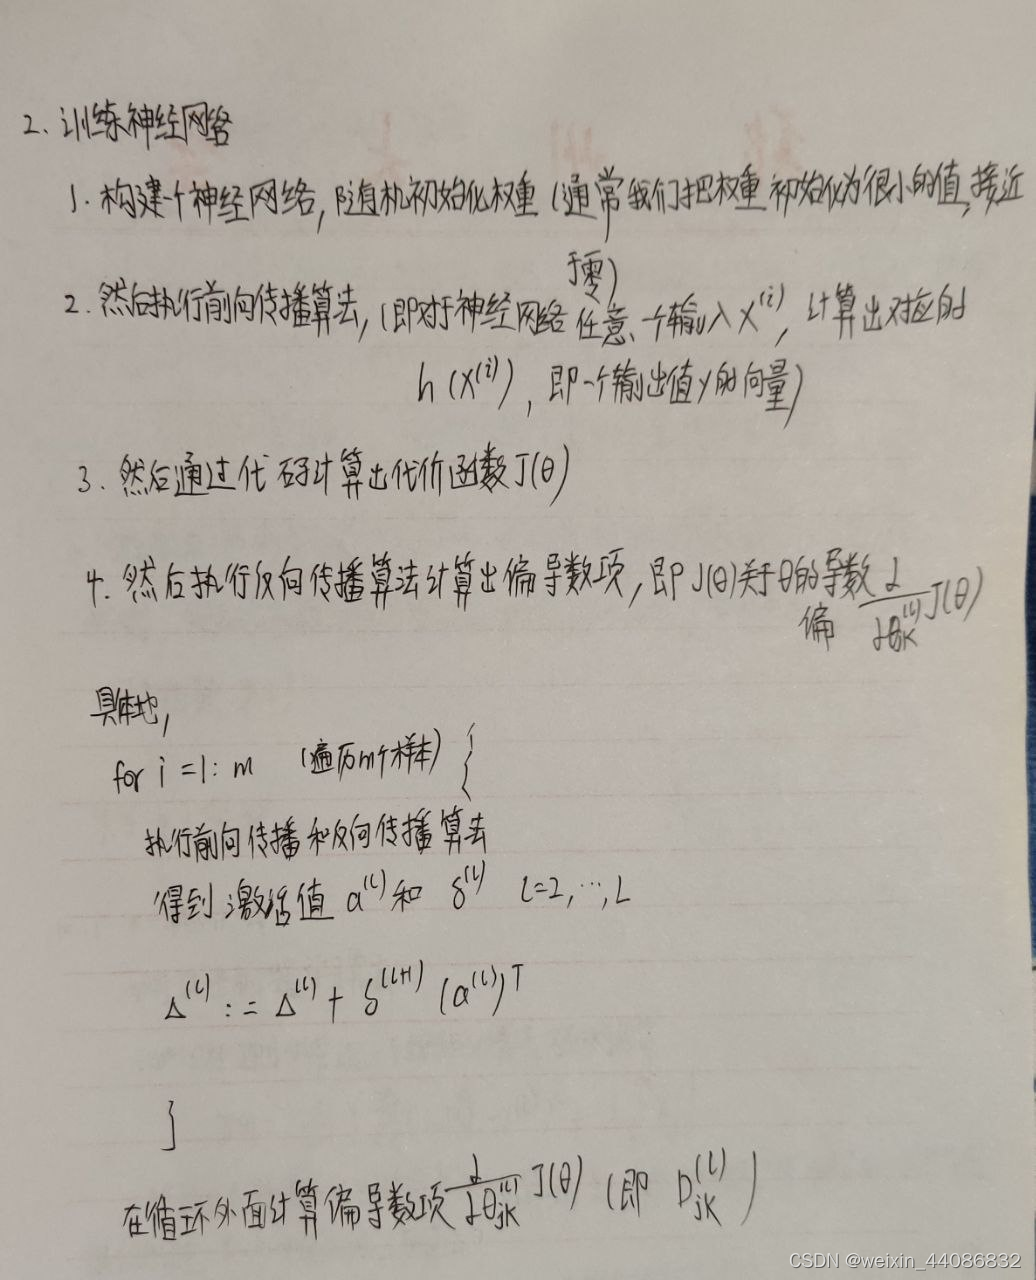 2. 训练神经网络
1. 构建一个神经网络,随机初始化权重(通常我们把权重初始化为很小的值,接近
于零)
2. 然后执行前向传播算法,(即对于神经网络任意一个输入X^(i),计算出对应的
h(X^(i)),即一个输出值y的向量)
3. 然后通过代码计算出代价函数J(θ)
4. 然后执行反向传播算法计算出偏导数项,即J(θ)关于θ的导数 ∂/∂θ_jk^(l) J(θ)
偏
具体地,
for i = 1: m (遍历m个样本) {
执行前向传播和反向传播算法
得到激活值 a^(l) 和 δ^(l) l=2,…,L
Δ^(l) := Δ^(l) + δ^(l+1) (a^(l))^T
}
在循环外面计算偏导数项 ∂/∂θ_jk^(l) J(θ) (即 D_jk^(l) )
CSDN @weixin_44086832